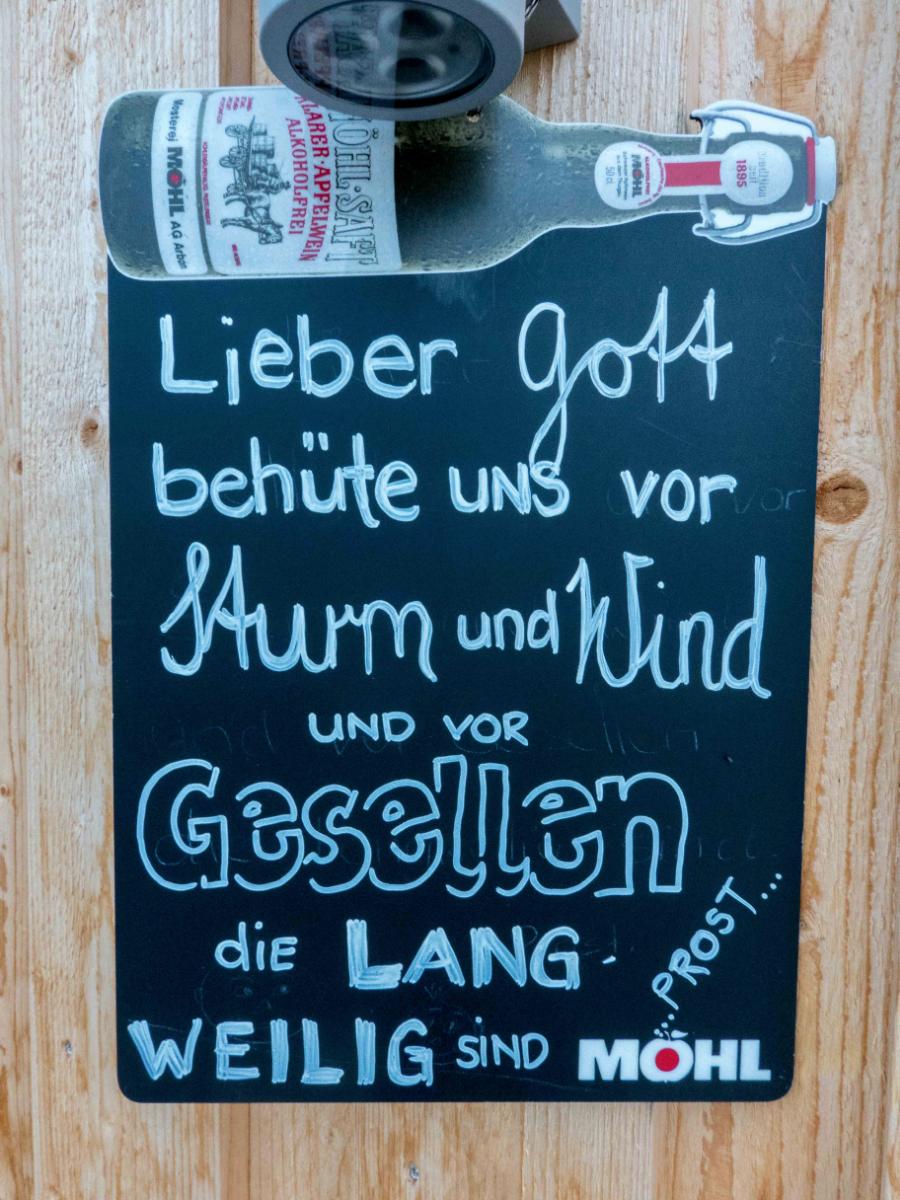 Mosterei MÖHL AG Arbon
MÖHL·SAFT
KLARER·APFELWEIN
ALKOHOLFREI
MÖHL
50 cl
1895
Lieber Gott
behüte uns vor
Sturm und Wind
UND VOR
Gesellen
die LANG-
WEILIG SIND
...PROST...
MÖHL